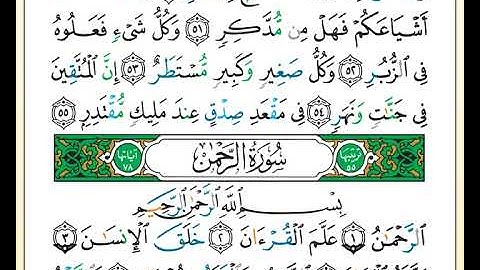 أَشْيَاعَكُمْ فَهَلْ مِن مُّدَّكِرٍ ٥١ وَكُلُّ شَىْءٍ فَعَلُوهُ
فِى ٱلزُّبُرِ ٥٢ وَكُلُّ صَغِيرٍ وَكَبِيرٍ مُّسْتَطَرٌ ٥٣ إِنَّ ٱلْمُتَّقِينَ
فِى جَنَّـٰتٍ وَنَهَرٍ ٥٤ فِى مَقْعَدِ صِدْقٍ عِندَ مَلِيكٍ مُّقْتَدِرٍۭ ٥٥
ترتيبها ٥٥ سُورَةُ الرَّحْمٰن آياتها ٧٨
بِسْمِ ٱللَّهِ ٱلرَّحْمَـٰنِ ٱلرَّحِيمِ
ٱلرَّحْمَـٰنُ ١ عَلَّمَ ٱلْقُرْءَانَ ٢ خَلَقَ ٱلْإِنسَـٰنَ ٣